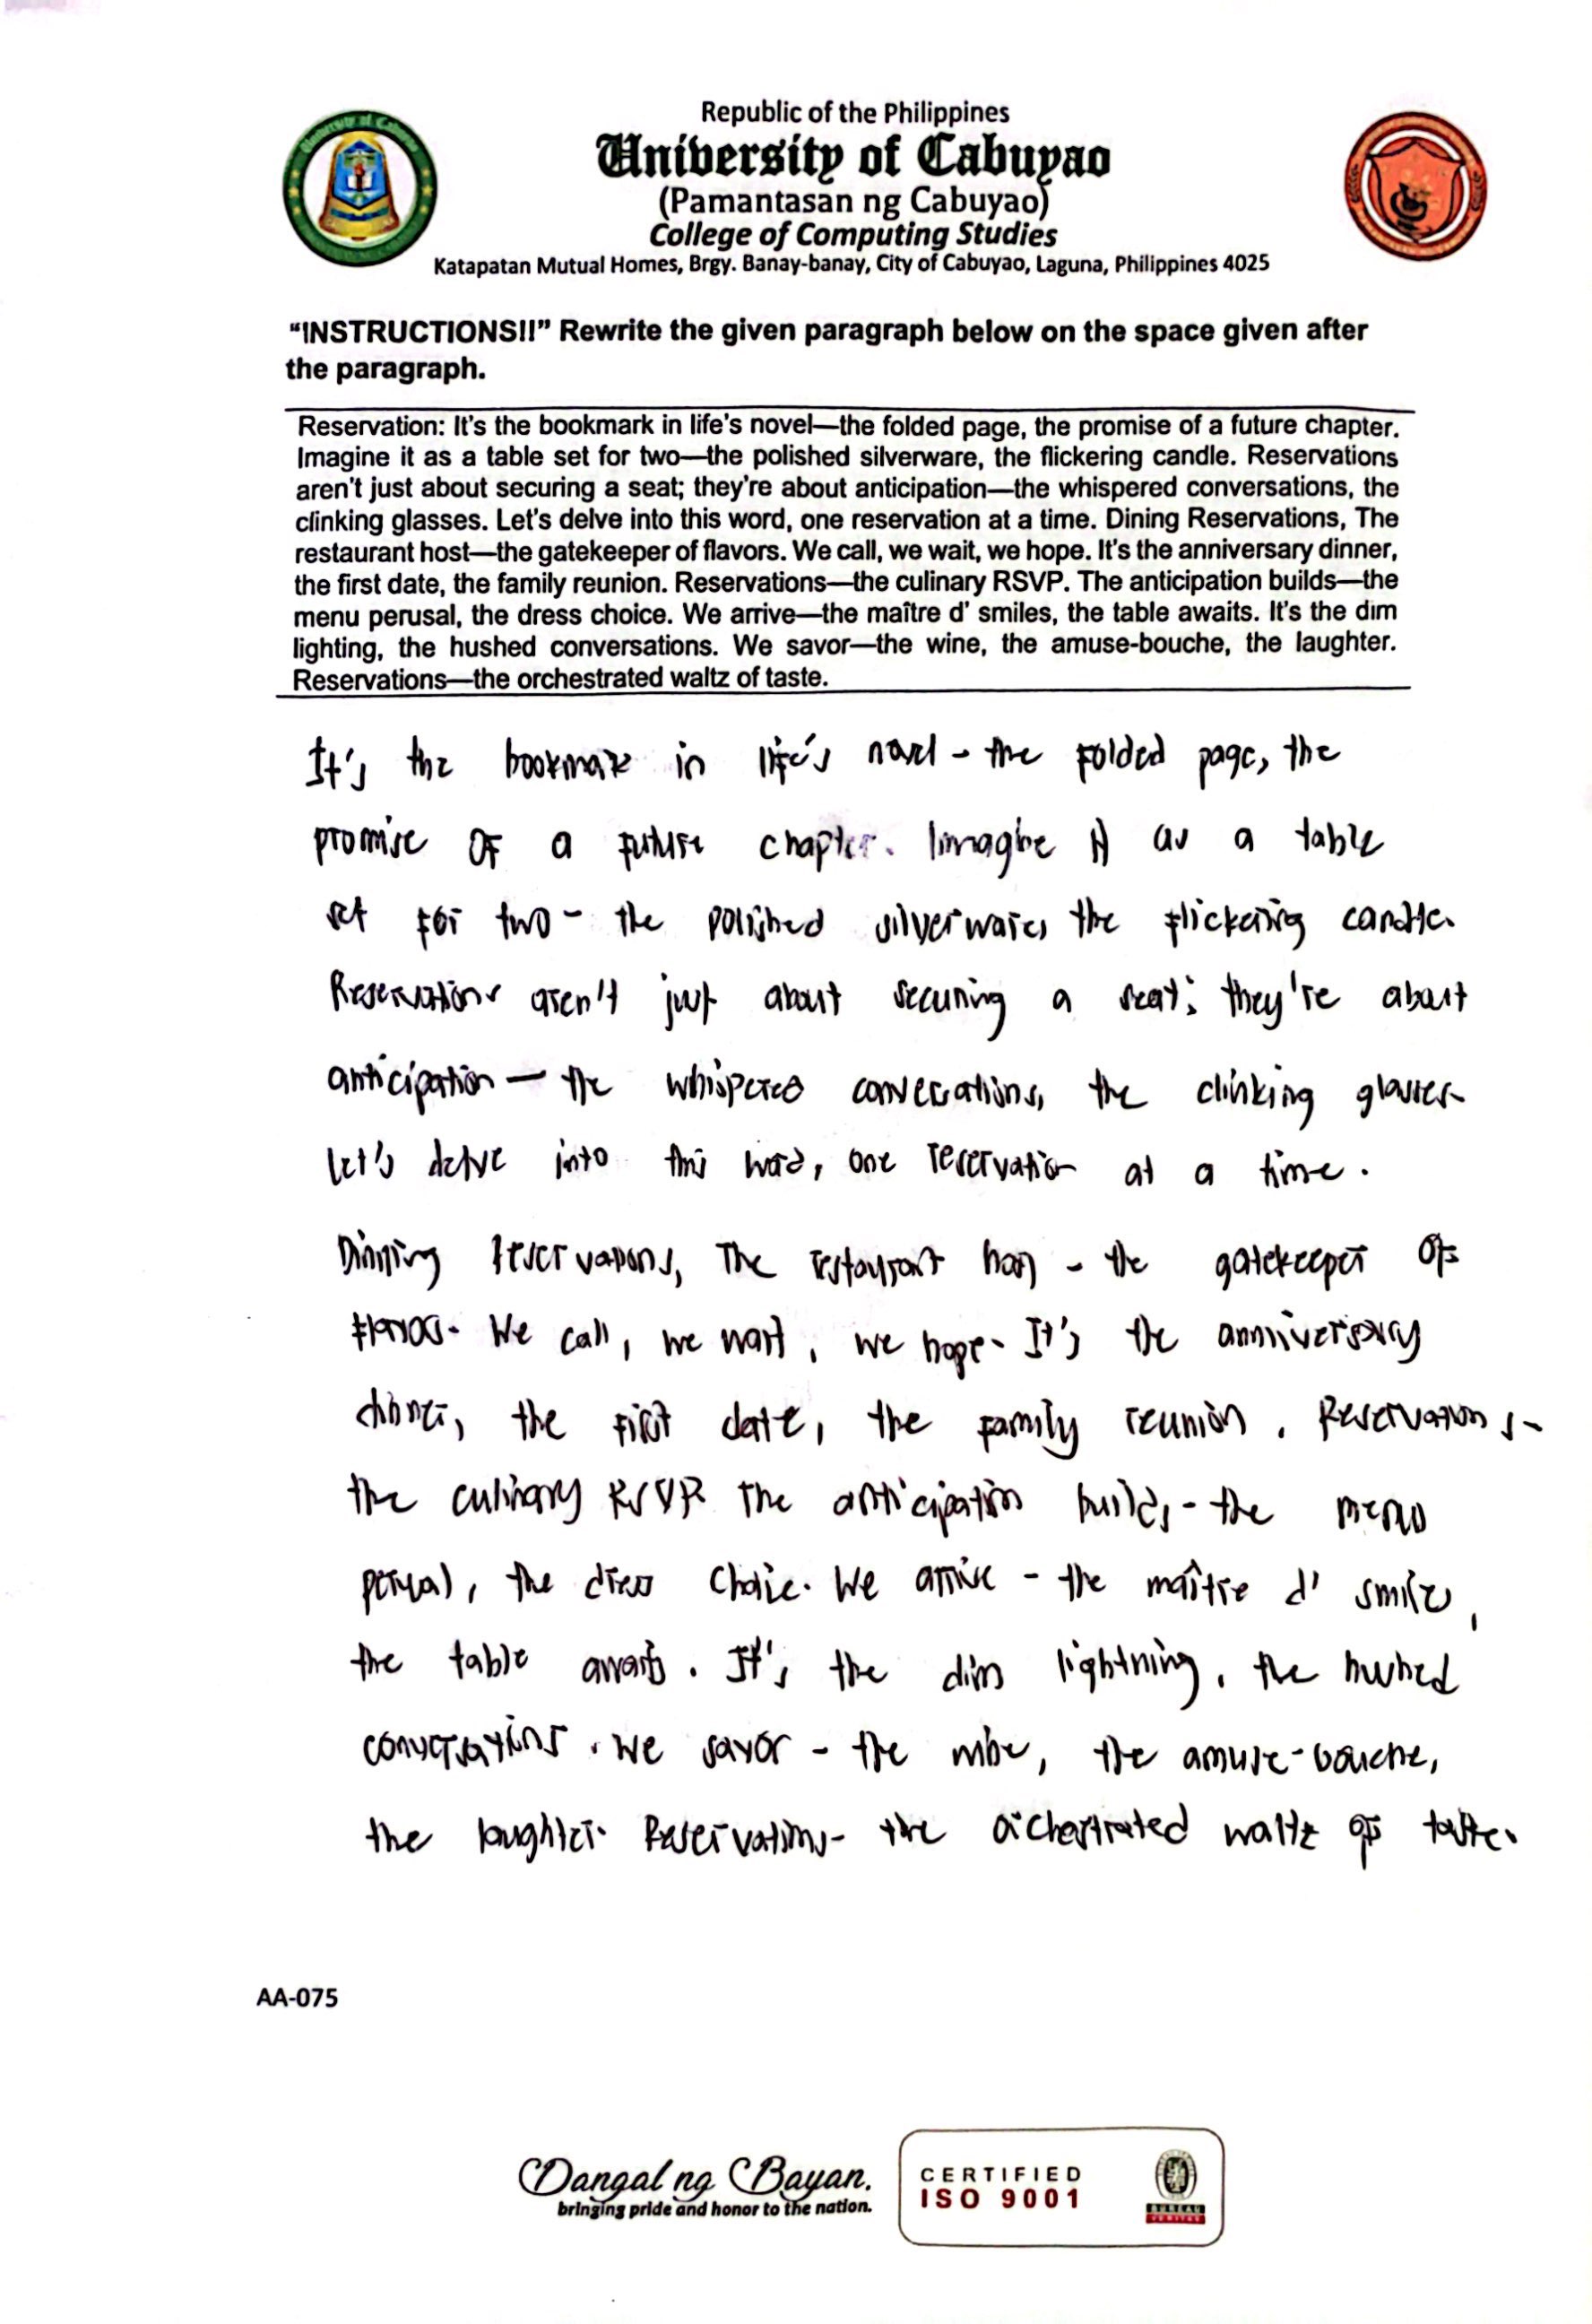 Republic of the Philippines
University of Cabuyao
(Pamantasan ng Cabuyao)
College of Computing Studies
Katapatan Mutual Homes, Brgy. Banay-banay, City of Cabuyao, Laguna, Philippines 4025
“INSTRUCTIONS!!” Rewrite the given paragraph below on the space given after
the paragraph.
Reservation: It’s the bookmark in life’s novel—the folded page, the promise of a future chapter.
Imagine it as a table set for two—the polished silverware, the flickering candle. Reservations
aren't just about securing a seat; they’re about anticipation—the whispered conversations, the
clinking glasses. Let’s delve into this word, one reservation at a time. Dining Reservations, The
restaurant host—the gatekeeper of flavors. We call, we wait, we hope. It’s the anniversary dinner,
the first date, the family reunion. Reservations—the culinary RSVP. The anticipation builds—the
menu perusal, the dress choice. We arrive—the maître d’ smiles, the table awaits. It’s the dim
lighting, the hushed conversations. We savor—the wine, the amuse-bouche, the laughter.
Reservations—the orchestrated waltz of taste.
It's the bookmark in life's novel - the folded page, the
promise of a future chapter. Imagine it as a table
set for two - the polished silverware, the flickering candle.
Reservations aren't just about securing a seat; they're about
anticipation — the whispered conversations, the clinking glasses.
Let's delve into this word, one reservation at a time.
Dinning Reservations, The restaurant host - the gatekeeper of
flavors. We call, we wait, we hope. It's the anniversary
dinner, the first date, the family reunion. Reservations -
the culinary RSVP. The anticipation builds - the menu
perusal, the dress choice. We arrive - the maître d' smiles,
the table awaits. It's the dim lightning, the hushed
conversations. We savor - the wine, the amuse-bouche,
the laughter. Reservations - the orchestrated waltz of taste.
AA-075
Dangal ng Bayan.
bringing pride and honor to the nation.
CERTIFIED
ISO 9001
BUREAU
VERITAS